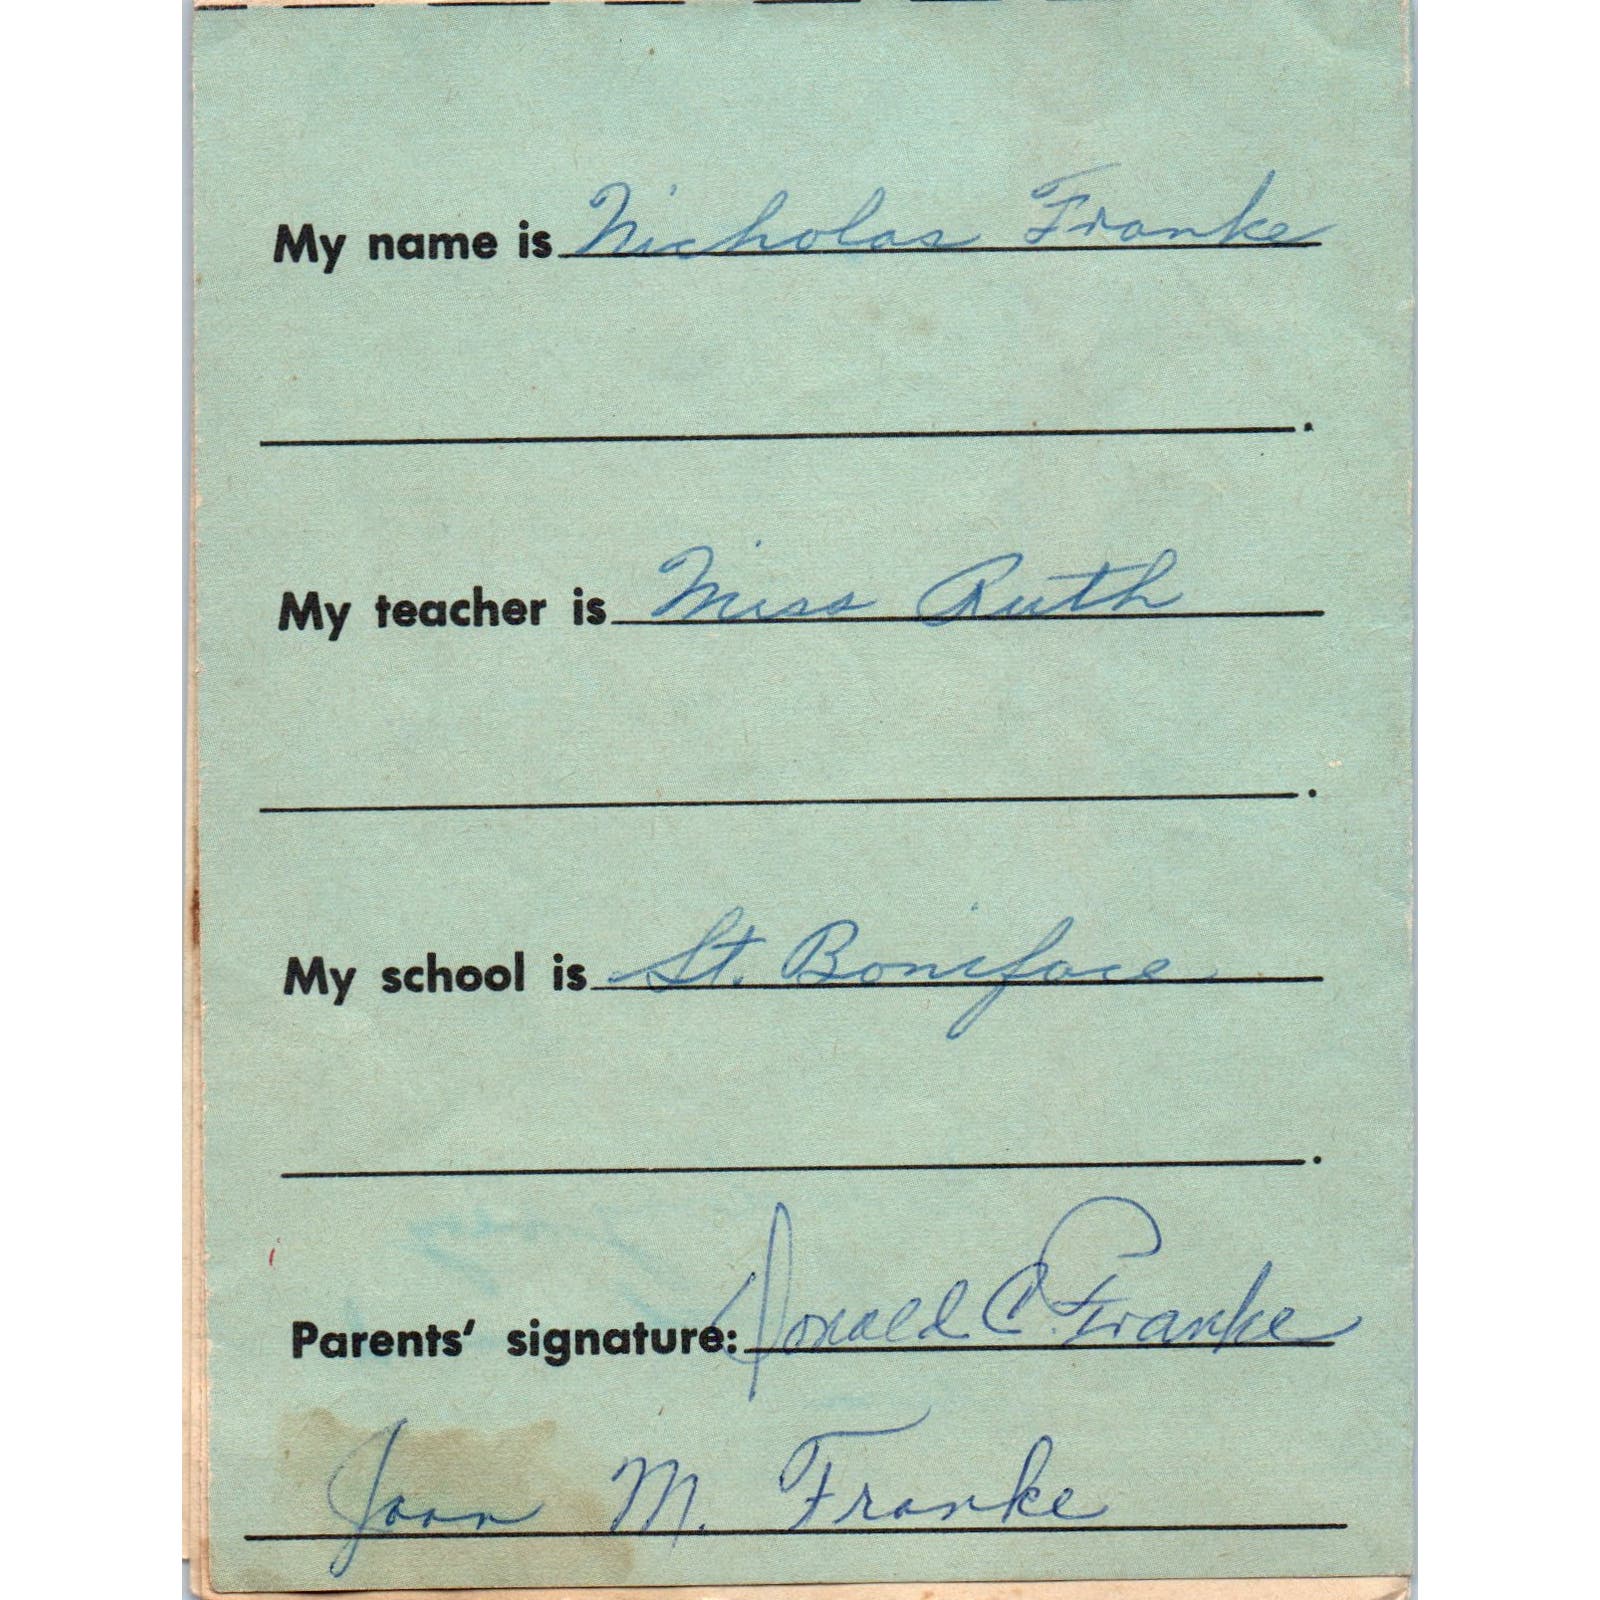 My name is Nicholas Franke
.
My teacher is Miss Ruth
.
My school is St. Boniface
.
Parents' signature: Donald C. Franke
Joan M. Franke